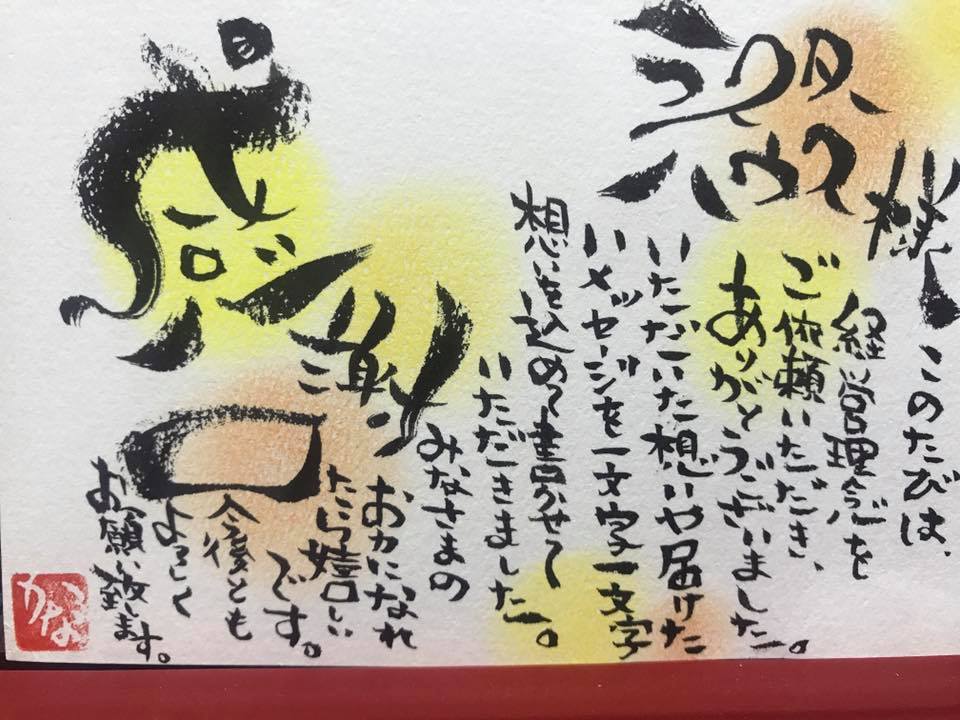 様
このたびは、
経営理念を
ご依頼いただき、
ありがとうございました。
いただいた想いや届けた
いメッセージを一文字一文字
想いを込めて書かせて
いただきました。
みなさまの
お力になれ
たら嬉しい
です。
今後とも
よろしく
お願い致します。
感謝